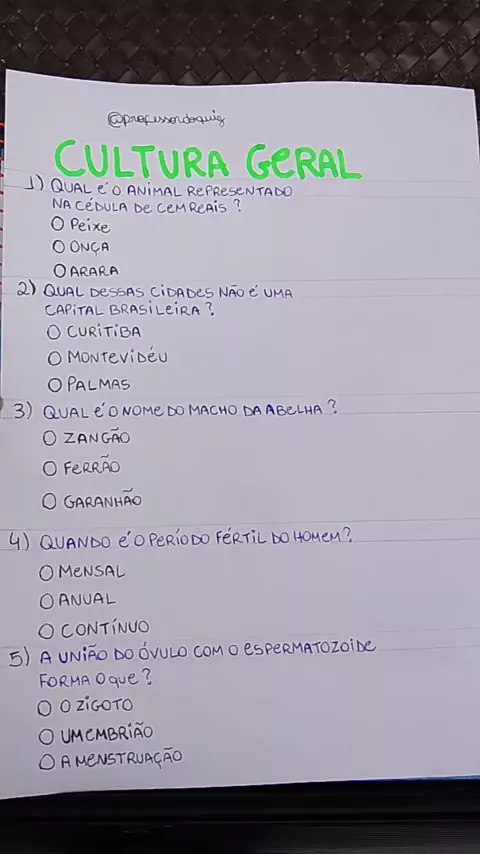 @professordoquiz
CULTURA GERAL
1) QUAL É O ANIMAL REPRESENTADO
NA CÉDULA DE CEM REAIS?
O PEIXE
O ONÇA
O ARARA
2) QUAL DESSAS CIDADES NÃO É UMA
CAPITAL BRASILEIRA?
O CURITIBA
O MONTEVIDÉU
O PALMAS
3) QUAL É O NOME DO MACHO DA ABELHA?
O ZANGÃO
O FERRÃO
O GARANHÃO
4) QUANDO É O PERÍODO FÉRTIL DO HOMEM?
O MENSAL
O ANUAL
O CONTÍNUO
5) A UNIÃO DO ÓVULO COM O ESPERMATOZOIDE
FORMA O QUE?
O O ZIGOTO
O UM EMBRIÃO
O A MENSTRUAÇÃO